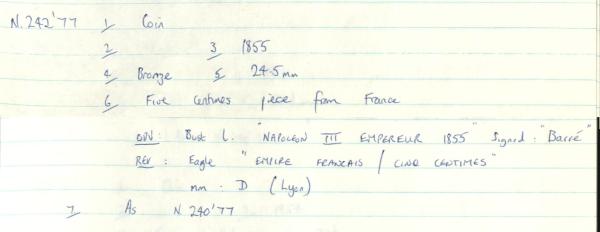 N.242'77 1 Coin
2 3 1855
4 Bronze 5 24.5mm
6 Five Centimes piece from France
OBV: Bust l. "NAPOLEON III EMPEREUR 1855" Signed: "Barré"
REV: Eagle "EMPIRE FRANCAIS / CINQ CENTIMES"
mm: D (Lyon)
7 As N.240'77